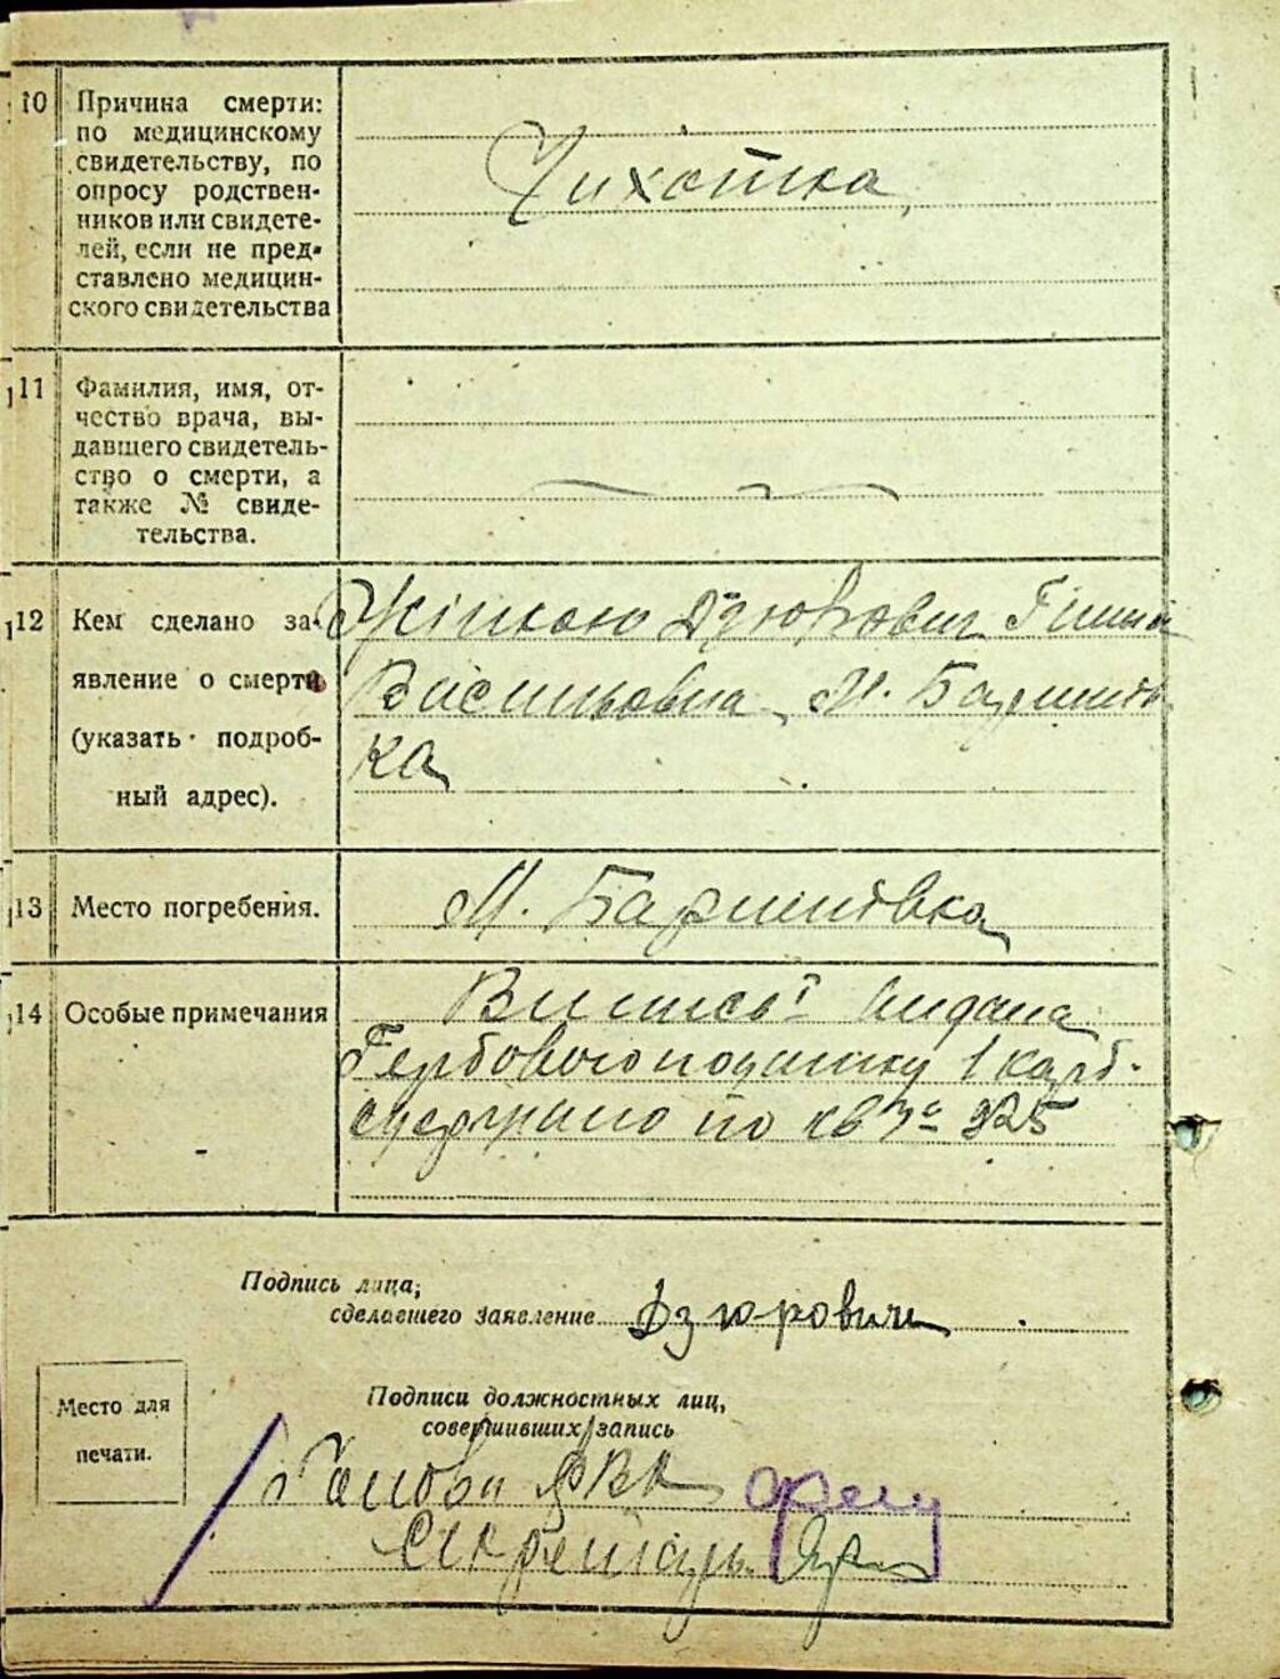 10 Причина смерти:
по медицинскому
свидетельству, по
опросу родствен-
ников или свидете-
лей, если не пред-
ставлено медицин-
ского свидетельства
Чихотка
11 Фамилия, имя, от-
чество врача, вы-
давшего свидетель-
ство о смерти, а
также № свиде-
тельства.
12 Кем сделано за-
явление о смерти
(указать подроб-
ный адрес).
Жінкою Дзюрович Ганна
Васильовна М. Баришів
ка
13 Место погребения.
М. Баришівка
14 Особые примечания
Випись видана
Гербового податку 1 карб.
одержано по кв № 925
Подпись лица,
сделавшего заявление Дзюрович
Место для
печати.
Подписи должностных лиц,
совершивших запись
Голова
Секретарь